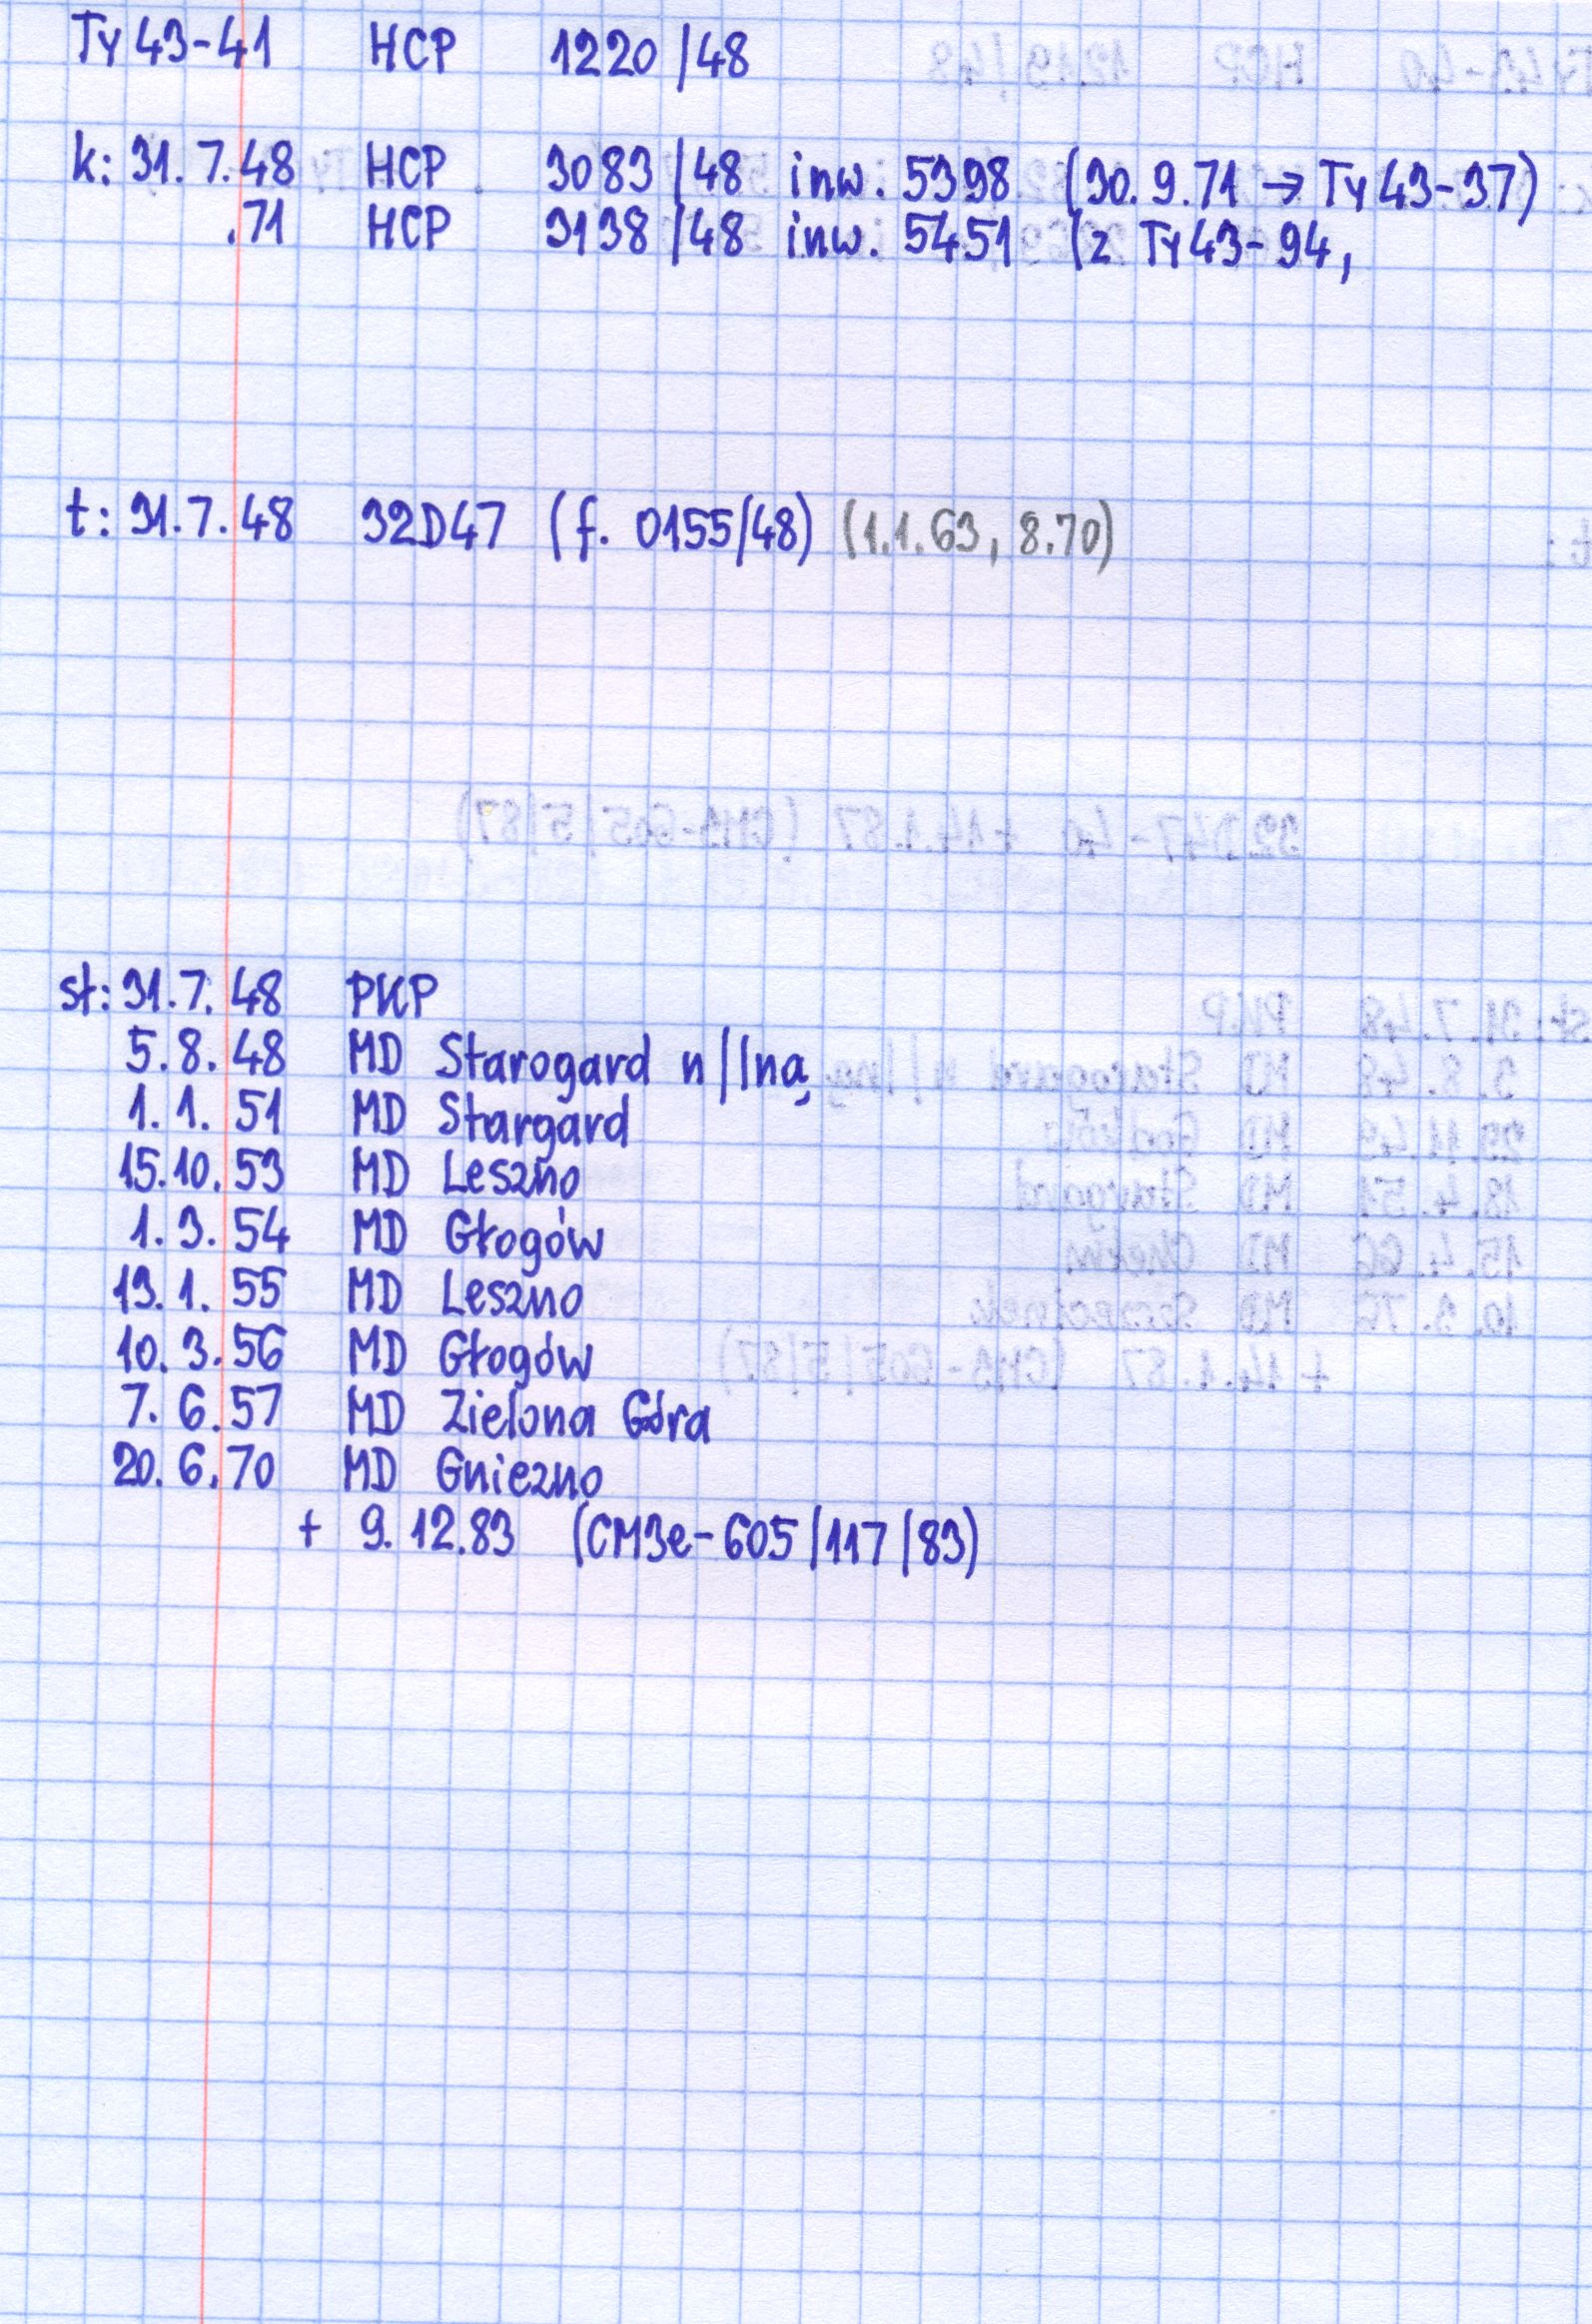 Ty43-41 HCP 1220/48
k: 31.7.48 HCP 3083/48 inw. 5398 (30.9.71 → Ty43-37)
.71 HCP 3138/48 inw. 5451 (z Ty43-94,
t: 31.7.48 32D47 (f. 0155/48) (1.1.63, 8.70)
st: 31.7.48 PKP
5.8.48 MD Starogard n/Iną
1.1.51 MD Stargard
15.10.53 MD Leszno
1.3.54 MD Głogów
13.1.55 MD Leszno
10.3.56 MD Głogów
7.6.57 MD Zielona Góra
20.6.70 MD Gniezno
+ 9.12.83 (CM3e-605/117/83)